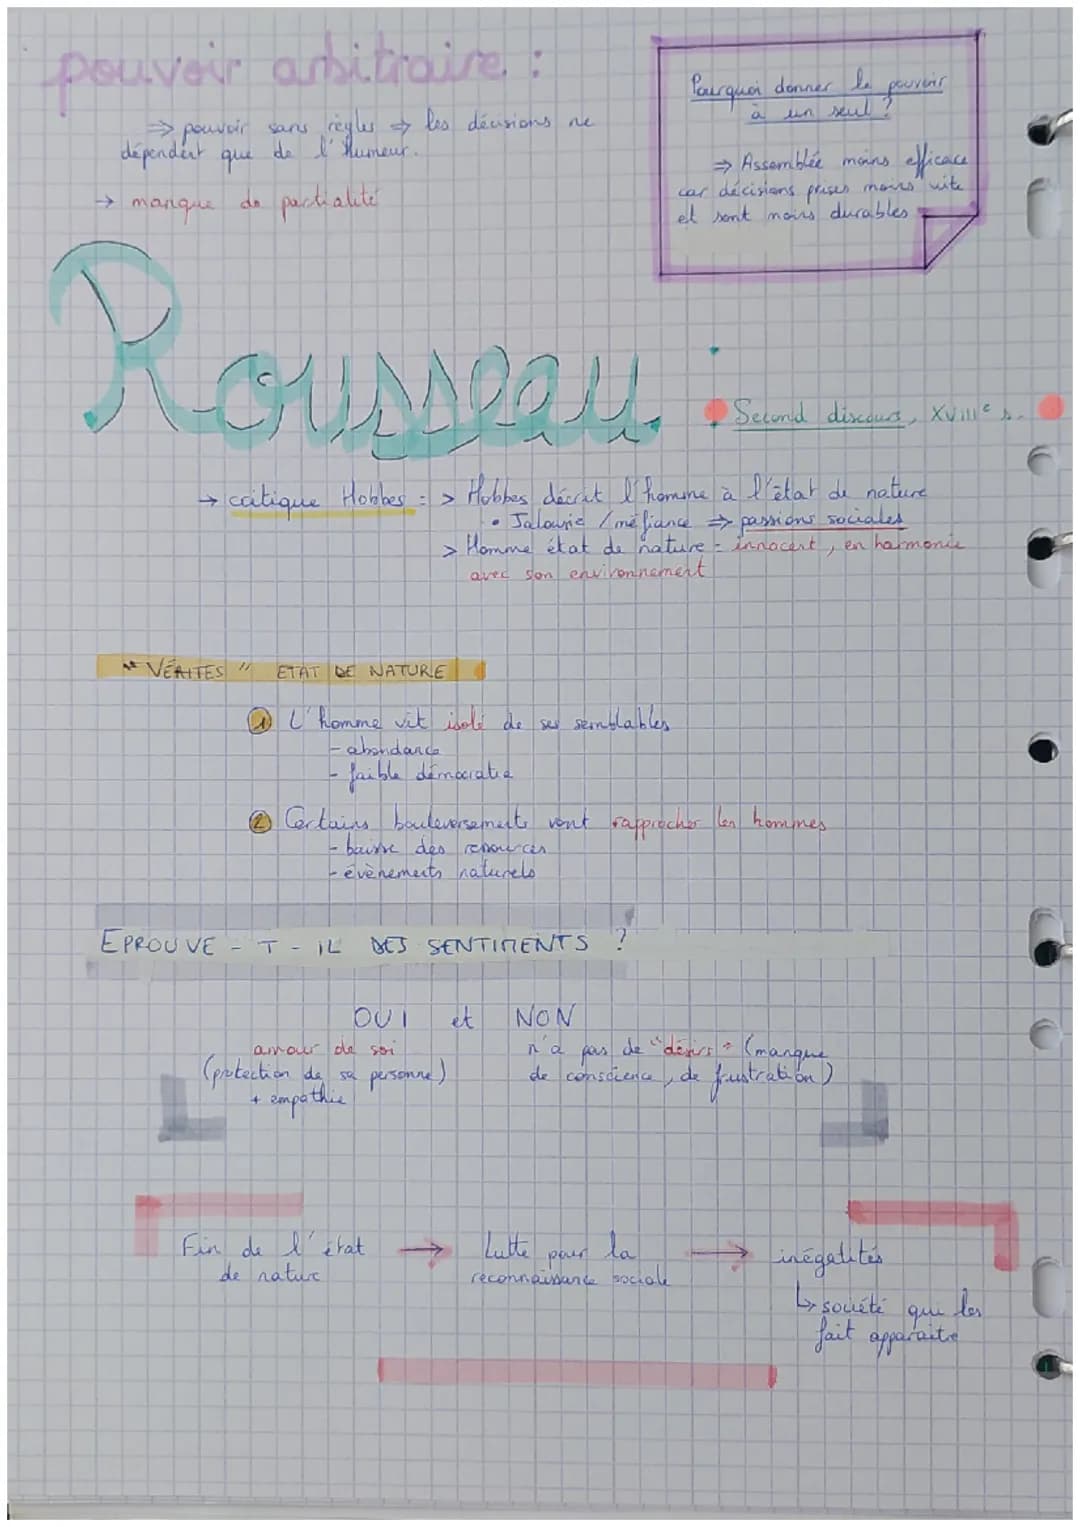 pouvoir arbitraire :
⇒ pouvoir sans règles ⇒ les décisions ne
dépendent que de l'humeur.
→ manque de partialité
Pourquoi donner le pouvoir
à un seul ?
⇒ Assemblée moins efficace
car décisions prises moins vite
et sont moins durables
Rousseau :
Second discours, XVIIIe s.
→ critique Hobbes = > Hobbes décrit l'homme à l'état de nature
• Jalousie / méfiance ⇒ passions sociales
> Homme état de nature = innocent, en harmonie
avec son environnement
"VÉRITES" ETAT DE NATURE
1 L'homme vit isolé de ses semblables
- abondance
- faible démocratie
2 Certains bouleversements vont rapprocher les hommes
- baisse des ressources
- évènements naturels
EPROUVE-T-IL DES SENTIMENTS ?
OUI et NON
amour de soi
(protection de sa personne)
+ empathie
n'a pas de "désirs" (manque
de conscience, de frustration)
Fin de l'état
de nature
→ Lutte pour la
reconnaissance sociale
→ inégalités
↳ société qui les
fait apparaitre